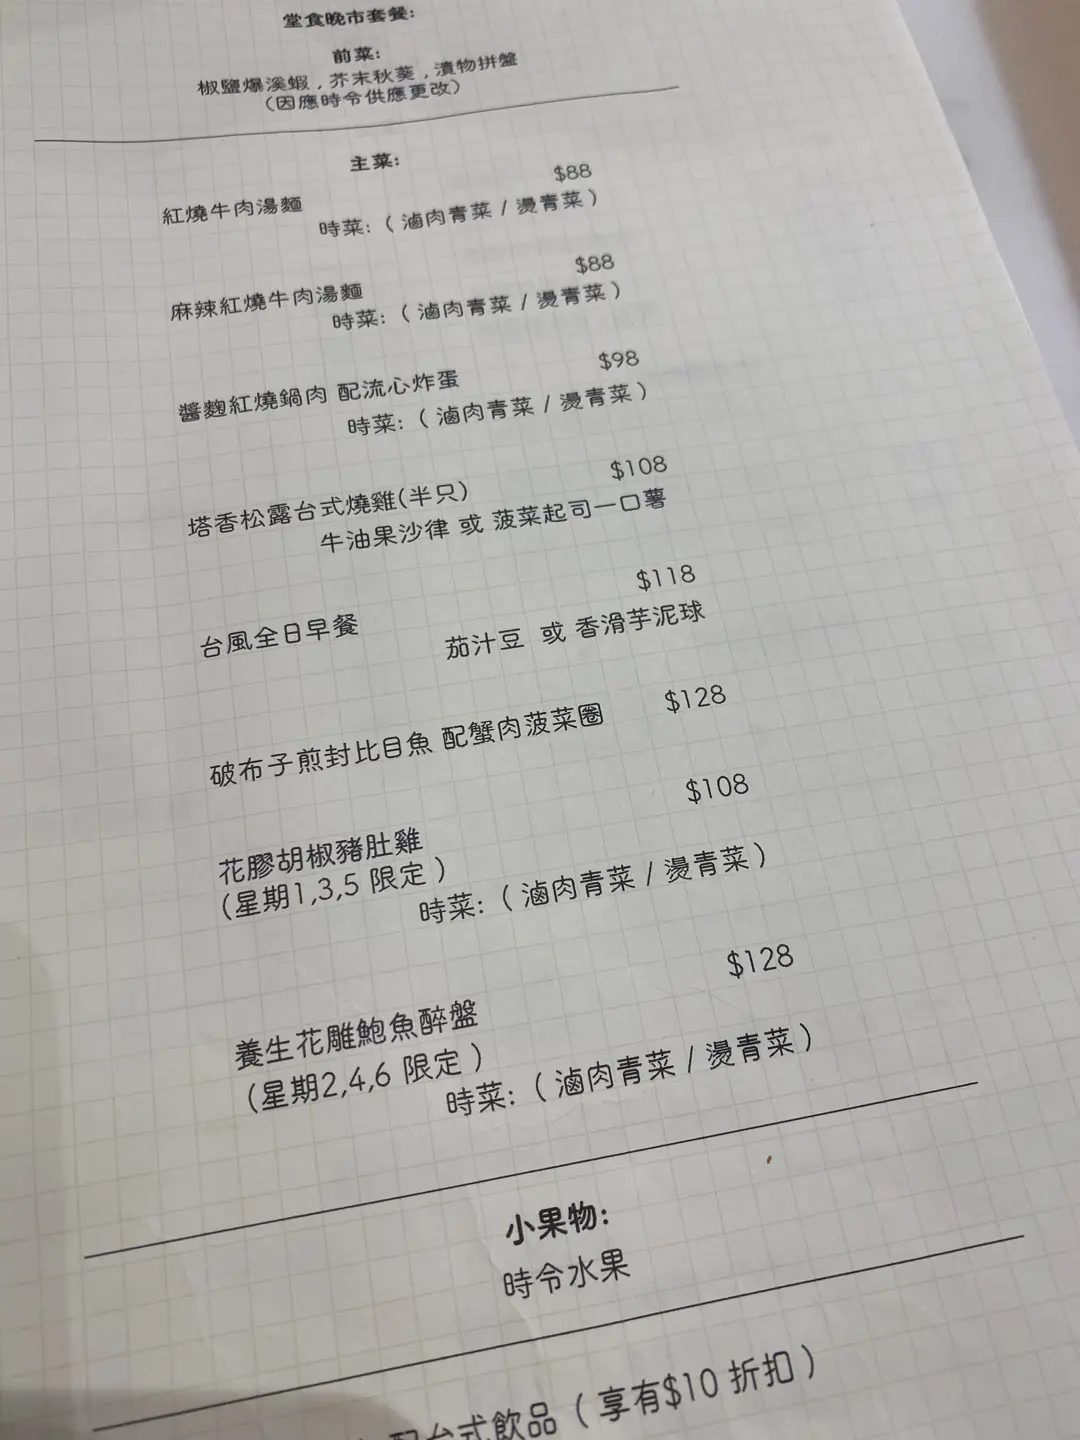 堂食晚市套餐:
前菜:
椒鹽爆溪蝦 , 芥末秋葵 , 漬物拼盤
(因應時令供應更改)
主菜:
紅燒牛肉湯麵 $88
時菜: ( 滷肉青菜 / 燙青菜 )
麻辣紅燒牛肉湯麵 $88
時菜: ( 滷肉青菜 / 燙青菜 )
醬麴紅燒鍋肉 配流心炸蛋 $98
時菜: ( 滷肉青菜 / 燙青菜 )
塔香松露台式燒雞(半只) $108
牛油果沙律 或 菠菜起司一口薯
台風全日早餐 $118
茄汁豆 或 香滑芋泥球
破布子煎封比目魚 配蟹肉菠菜圈 $128
花膠胡椒豬肚雞 $108
(星期1,3,5 限定 )
時菜: ( 滷肉青菜 / 燙青菜 )
養生花雕鮑魚醉盤 $128
(星期2,4,6 限定 )
時菜: ( 滷肉青菜 / 燙青菜 )
小果物:
時令水果
配台式飲品 ( 享有$10 折扣 )